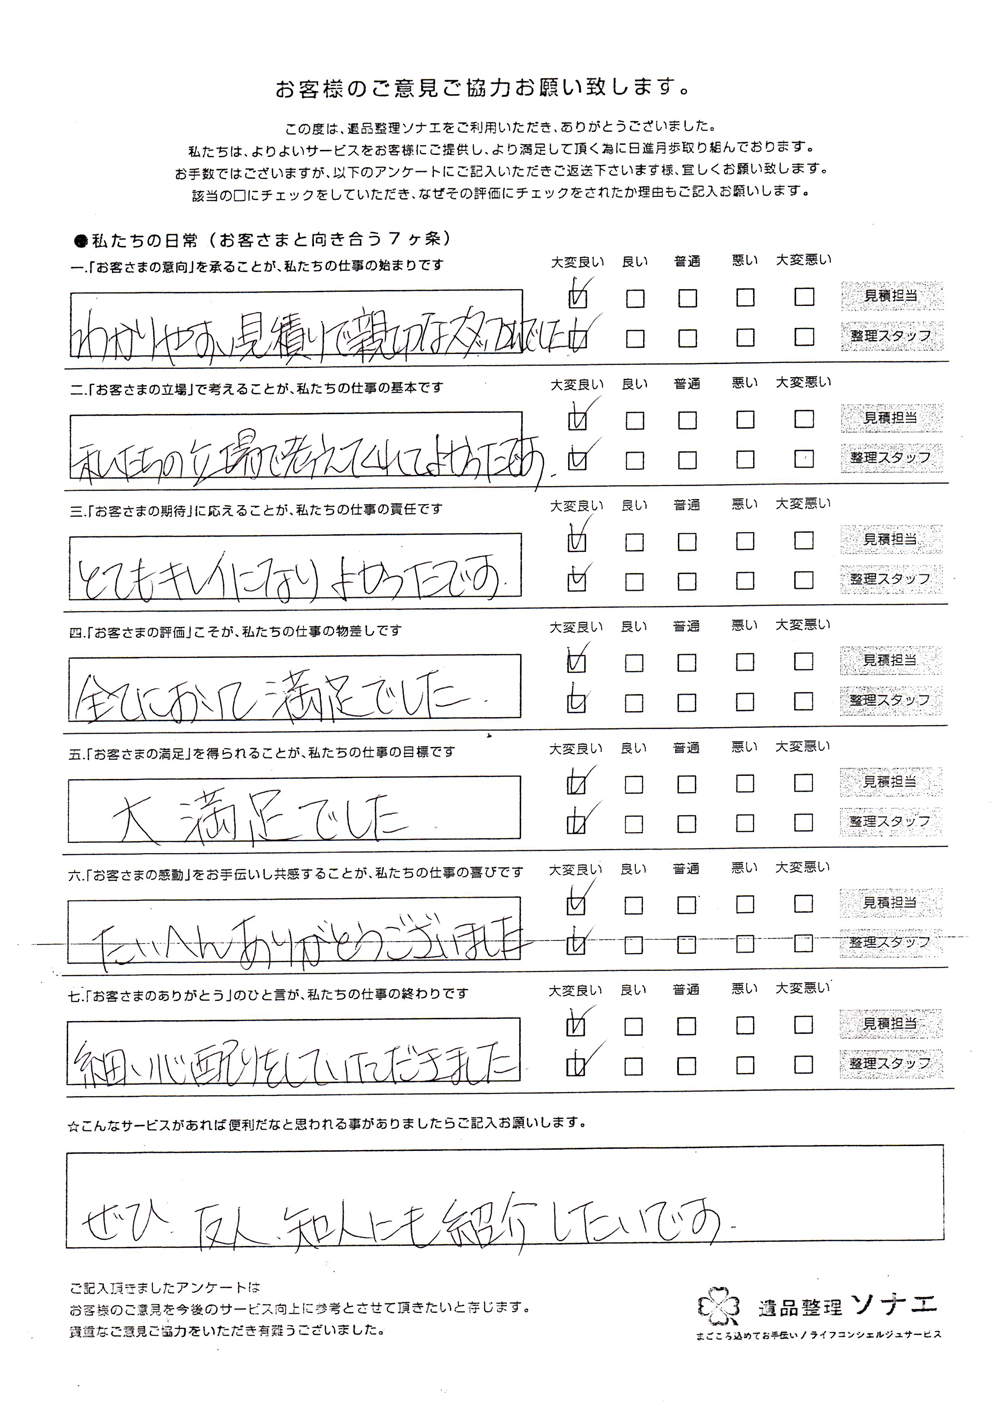 お客様のご意見ご協力お願い致します。
この度は、遺品整理ソナエをご利用いただき、ありがとうございました。
私たちは、よりよいサービスをお客様にご提供し、より満足して頂く為に日進月歩取り組んでおります。
お手数ではございますが、以下のアンケートにご記入いただきご返送下さいます様、宜しくお願い致します。
該当の□にチェックをしていただき、なぜその評価にチェックをされたか理由もご記入お願いします。
●私たちの日常（お客さまと向き合う7ヶ条）
一.「お客さまの意向」を承ることが、私たちの仕事の始まりです 大変良い 良い 普通 悪い 大変悪い
見積担当
わかりやすい見積りで親切なスタッフさんでした 整理スタッフ
二.「お客さまの立場」で考えることが、私たちの仕事の基本です 大変良い 良い 普通 悪い 大変悪い
見積担当
私たちの立場で考えてくれてよかったです。 整理スタッフ
三.「お客さまの期待」に応えることが、私たちの仕事の責任です 大変良い 良い 普通 悪い 大変悪い
見積担当
とてもキレイになりよかったです. 整理スタッフ
四.「お客さまの評価」こそが、私たちの仕事の物差しです 大変良い 良い 普通 悪い 大変悪い
見積担当
全てにおいて満足でした. 整理スタッフ
五.「お客さまの満足」を得られることが、私たちの仕事の目標です 大変良い 良い 普通 悪い 大変悪い
見積担当
大満足でした. 整理スタッフ
六.「お客さまの感動」をお手伝いし共感することが、私たちの仕事の喜びです 大変良い 良い 普通 悪い 大変悪い
見積担当
たいへんありがとうございました 整理スタッフ
七.「お客さまのありがとう」のひと言が、私たちの仕事の終わりです 大変良い 良い 普通 悪い 大変悪い
見積担当
細い心配りをしていただきました 整理スタッフ
☆こんなサービスがあれば便利だなと思われる事がありましたらご記入お願いします。
ぜひ、友人、知人にも紹介したいです.
ご記入頂きましたアンケートは
お客様のご意見を今後のサービス向上に参考とさせて頂きたいと存じます。
貴重なご意見ご協力をいただき有難うございました。
遺品整理 ソナエ
まごころ込めてお手伝い／ライフコンシェルジュサービス